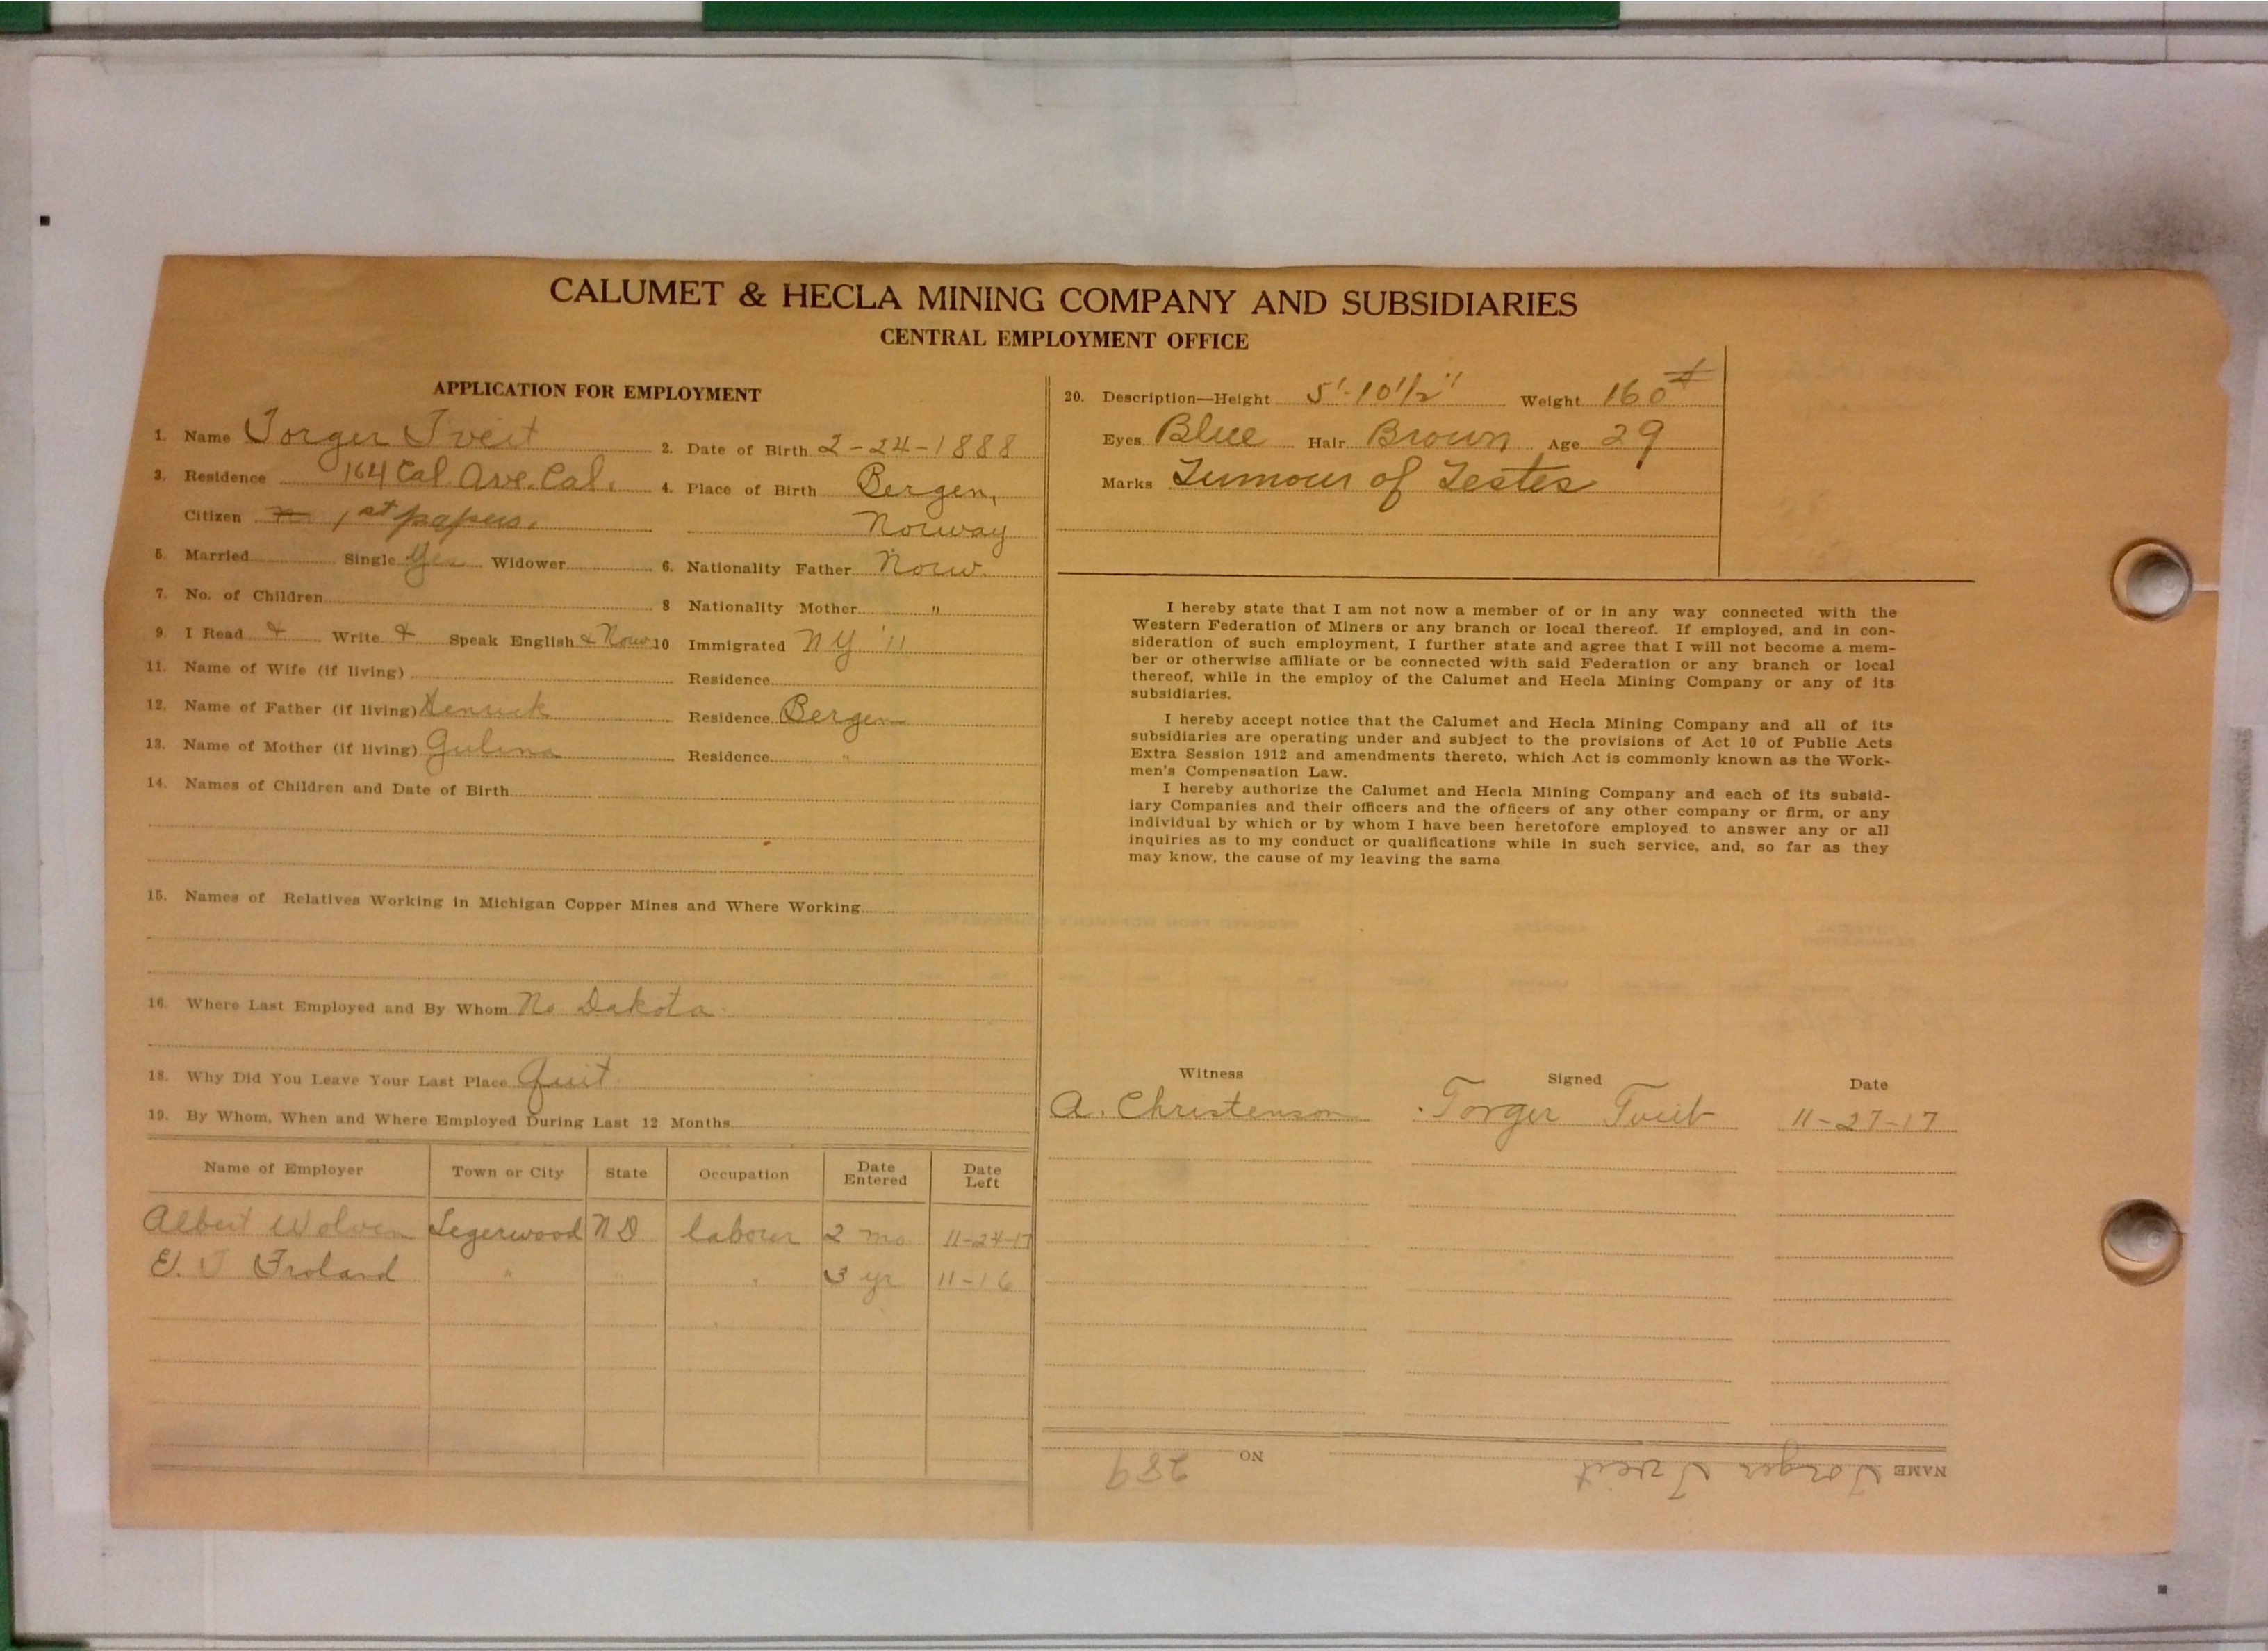 CALUMET & HECLA MINING COMPANY AND SUBSIDIARIES
CENTRAL EMPLOYMENT OFFICE
APPLICATION FOR EMPLOYMENT
1. Name Torger Tveit 2. Date of Birth 2-24-1888
3. Residence 164 Cal. Ave. Cal. 4. Place of Birth Bergen,
Citizen no 1st papers. Norway
5. Married Single Yes Widower 6. Nationality Father Norw.
7. No. of Children 8 Nationality Mother "
9. I Read & Write & Speak English & Norw 10 Immigrated NY '11
11. Name of Wife (if living) Residence
12. Name of Father (if living) Residence Bergen
13. Name of Mother (if living) Gulina Residence "
14. Names of Children and Date of Birth
15. Names of Relatives Working in Michigan Copper Mines and Where Working
16. Where Last Employed and By Whom No Dakota
18. Why Did You Leave Your Last Place Quit
19. By Whom, When and Where Employed During Last 12 Months
Name of Employer Town or City State Occupation Date Entered Date Left
Albert Wolven Legerwood N D. labour 2 mo 11-24-17
E. T Froland " " " 3 yr 11-16
20. Description—Height 5'-10 1/2" Weight 160#
Eyes Blue Hair Brown Age 29
Marks Tumour of Testes
I hereby state that I am not now a member of or in any way connected with the
Western Federation of Miners or any branch or local thereof. If employed, and in con-
sideration of such employment, I further state and agree that I will not become a mem-
ber or otherwise affiliate or be connected with said Federation or any branch or local
thereof, while in the employ of the Calumet and Hecla Mining Company or any of its
subsidiaries.
I hereby accept notice that the Calumet and Hecla Mining Company and all of its
subsidiaries are operating under and subject to the provisions of Act 10 of Public Acts
Extra Session 1912 and amendments thereto, which Act is commonly known as the Work-
men's Compensation Law.
I hereby authorize the Calumet and Hecla Mining Company and each of its subsid-
iary Companies and their officers and the officers of any other company or firm, or any
individual by which or by whom I have been heretofore employed to answer any or all
inquiries as to my conduct or qualifications while in such service, and, so far as they
may know, the cause of my leaving the same
Witness Signed Date
A. Christenson Torger Tveit 11-27-17
NAME Torger Tveit NO 289